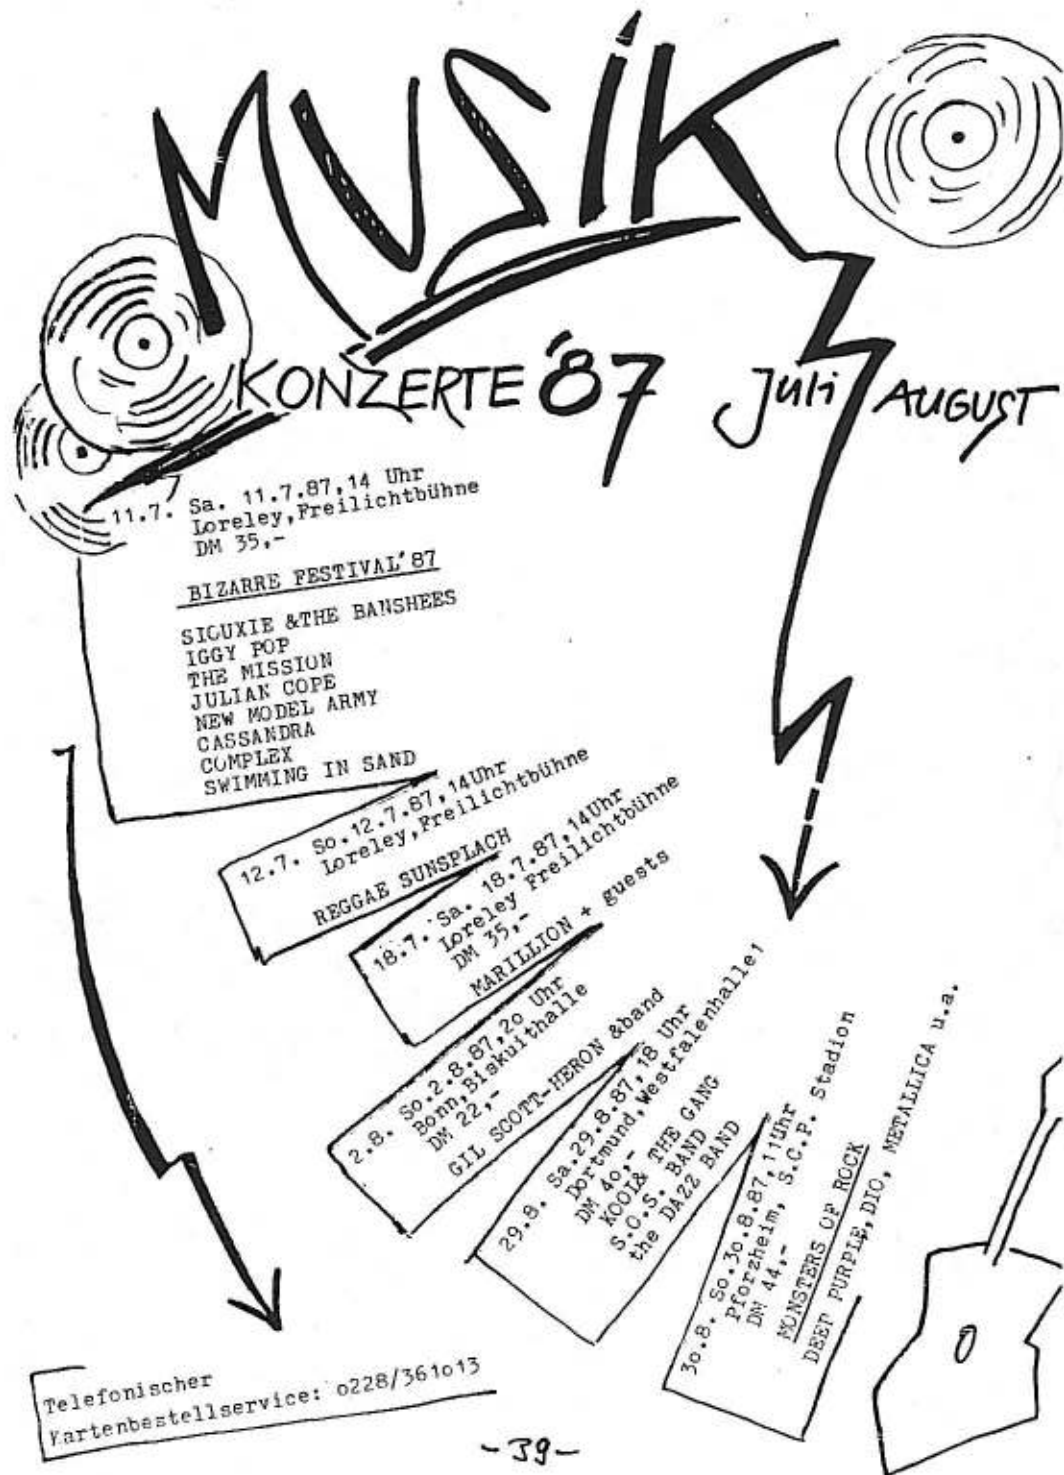 MUSiK
KONZERTE '87 Juli AUGUST
11.7. Sa. 11.7.87,14 Uhr
Loreley,Freilichtbühne
DM 35,-
BIZARRE FESTIVAL'87
SIOUXIE &THE BANSHEES
IGGY POP
THE MISSION
JULIAN COPE
NEW MODEL ARMY
CASSANDRA
COMPLEX
SWIMMING IN SAND
12.7. So.12.7.87,14Uhr
Loreley,Freilichtbühne
REGGAE SUNSPLACH
18.7. Sa. 18.7.87,14Uhr
Loreley Freilichtbühne
DM 35,-
MARILLION + guests
2.8. So.2.8.87,2o Uhr
Bonn,Biskuithalle
DM 22,-
GIL SCOTT-HERON &band
29.8. Sa.29.8.87,18 Uhr
Dortmund,Westfalenhalle1
DM 4o,-
KOOL& THE GANG
S.O.S. BAND
the DAZZ BAND
3o.8. So.3o.8.87,11Uhr
Pforzheim, S.C.P. Stadion
DM 44,-
MONSTERS OF ROCK
DEEP PURPLE,DIO, METALLICA u.a.
Telefonischer
Kartenbestellservice: o228/361o13
-39-